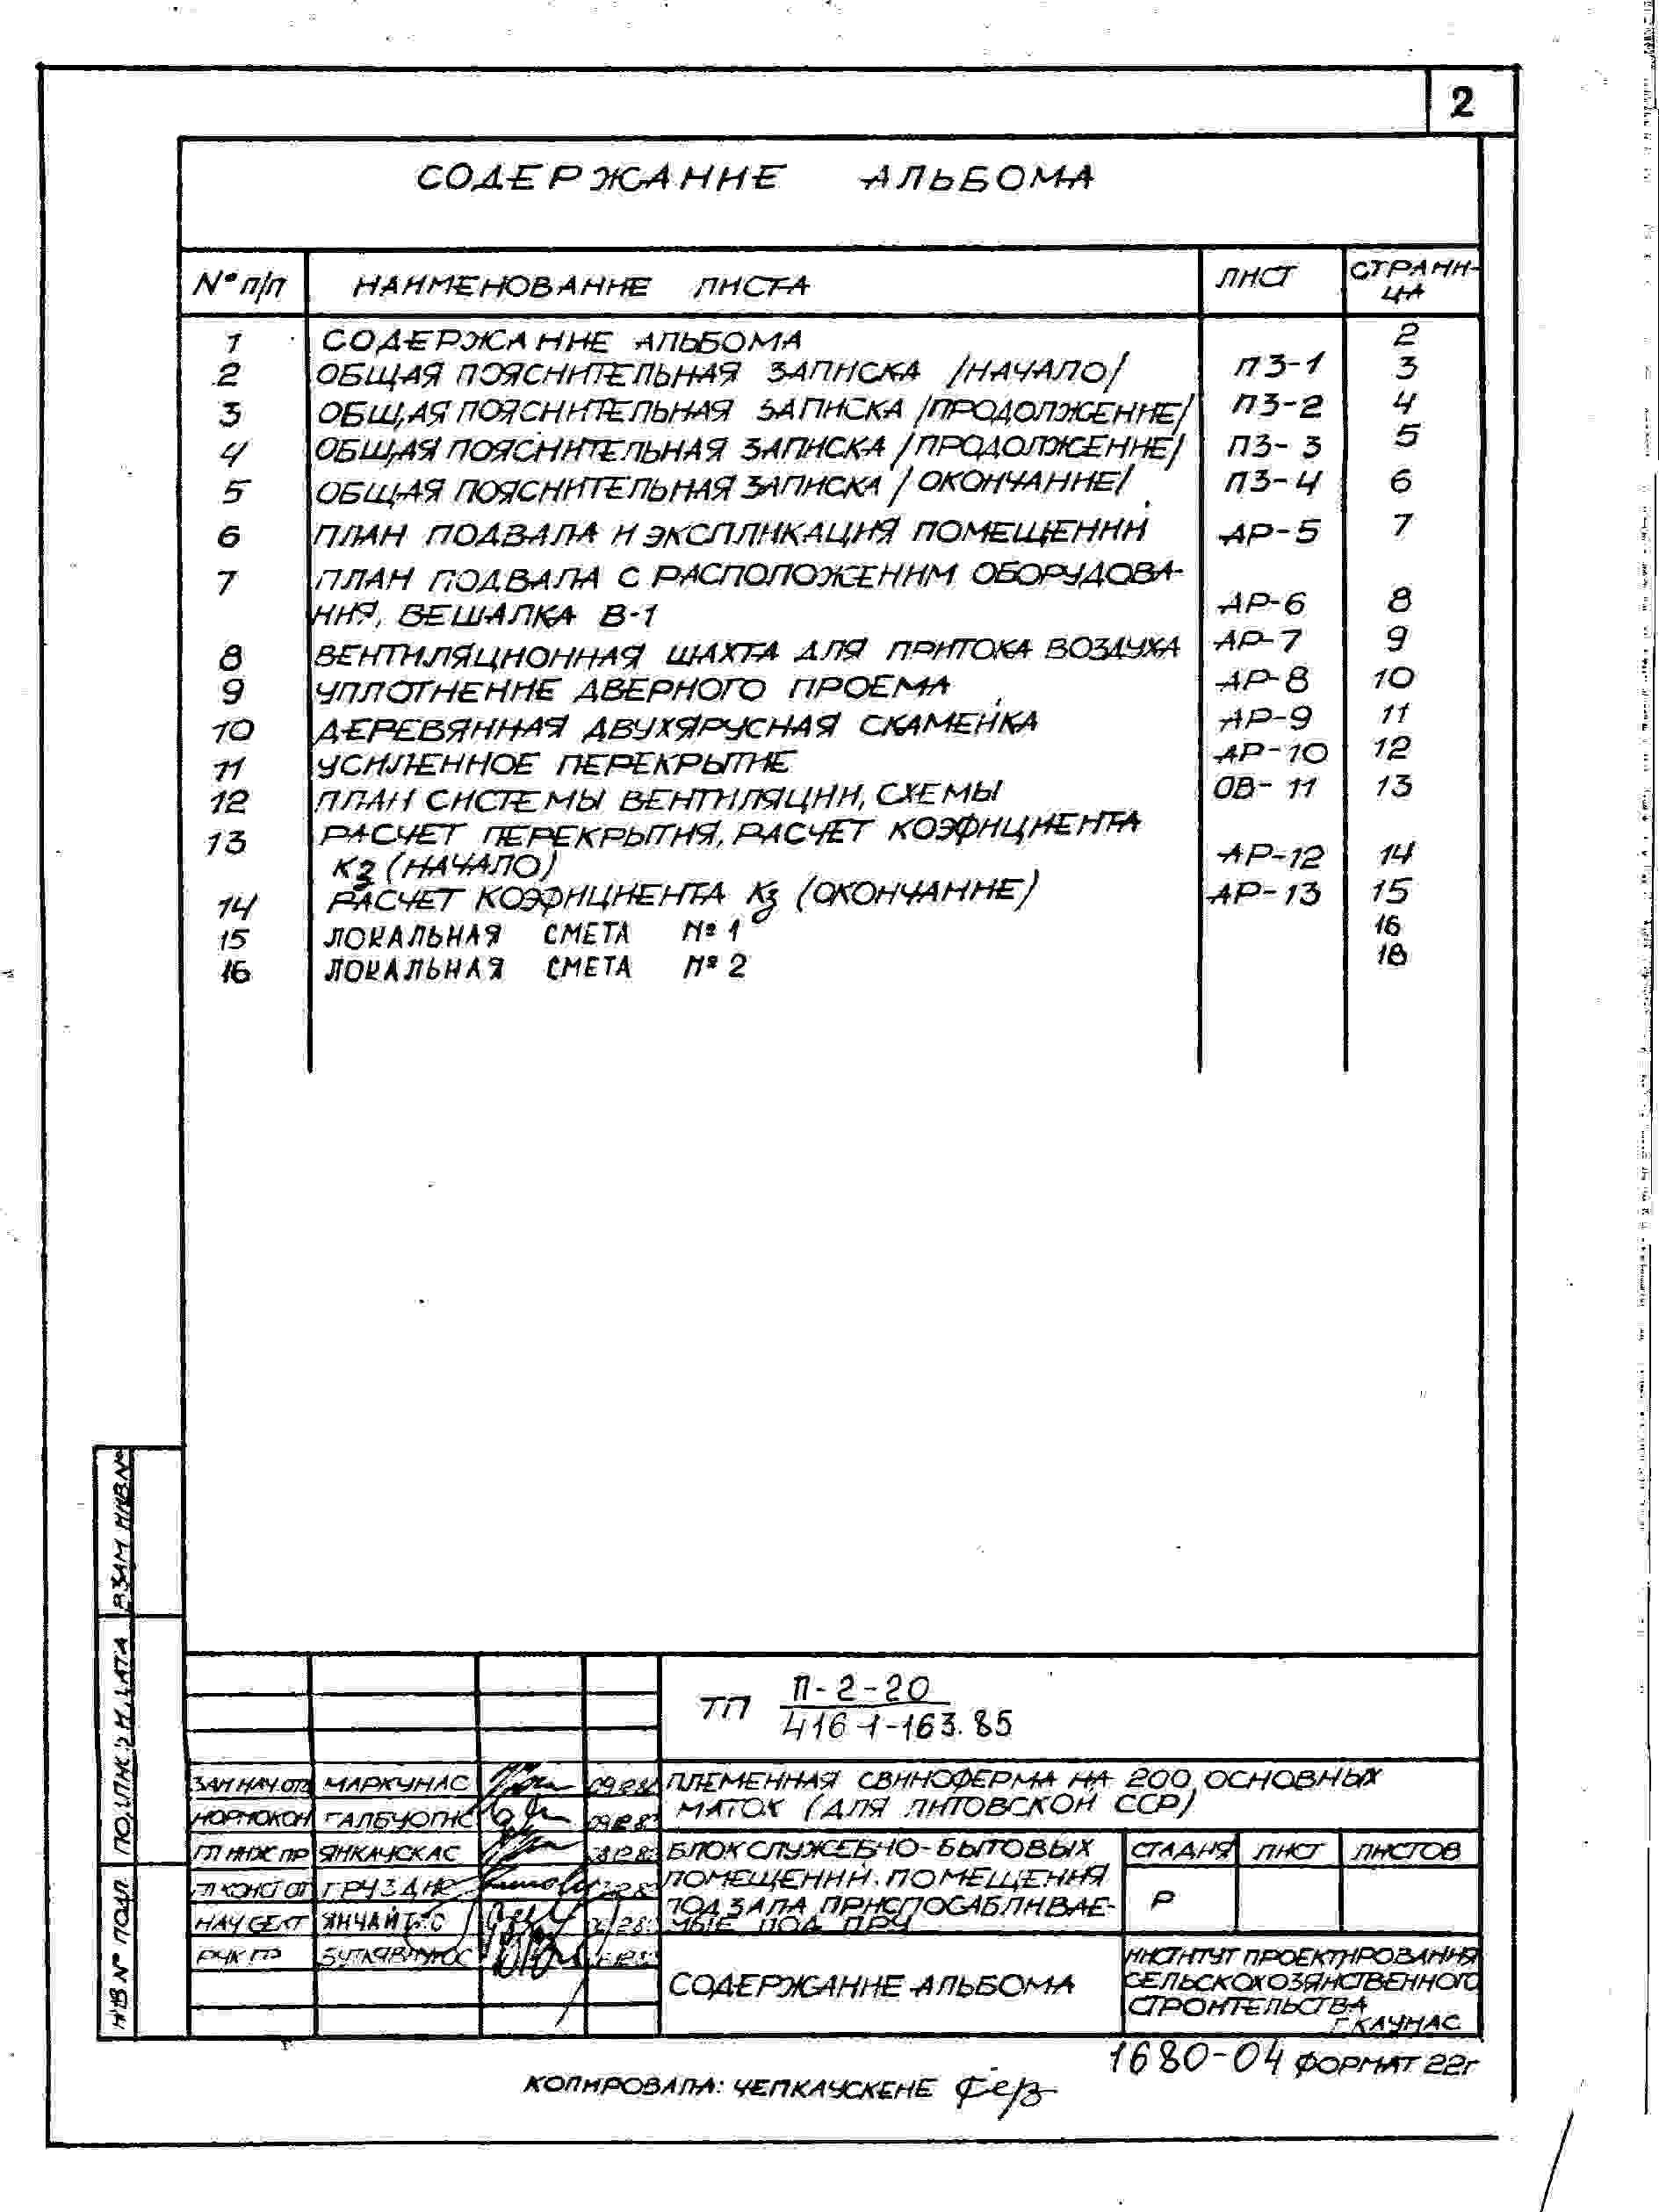 2
СОДЕРЖАНИЕ АЛЬБОМА
№ п/п НАИМЕНОВАНИЕ ЛИСТА ЛИСТ СТРАНИ-
ЦА
1 СОДЕРЖАНИЕ АЛЬБОМА 2
2 ОБЩАЯ ПОЯСНИТЕЛЬНАЯ ЗАПИСКА /НАЧАЛО/ ПЗ-1 3
3 ОБЩАЯ ПОЯСНИТЕЛЬНАЯ ЗАПИСКА /ПРОДОЛЖЕНИЕ/ ПЗ-2 4
4 ОБЩАЯ ПОЯСНИТЕЛЬНАЯ ЗАПИСКА /ПРОДОЛЖЕНИЕ/ ПЗ-3 5
5 ОБЩАЯ ПОЯСНИТЕЛЬНАЯ ЗАПИСКА /ОКОНЧАНИЕ/ ПЗ-4 6
6 ПЛАН ПОДВАЛА И ЭКСПЛИКАЦИЯ ПОМЕЩЕНИИ АР-5 7
7 ПЛАН ПОДВАЛА С РАСПОЛОЖЕНИМ ОБОРУДОВА-
НИЯ, ВЕШАЛКА В-1 АР-6 8
8 ВЕНТИЛЯЦИОННАЯ ШАХТА ДЛЯ ПРИТОКА ВОЗДУХА АР-7 9
9 УПЛОТНЕНИЕ ДВЕРНОГО ПРОЕМА АР-8 10
10 ДЕРЕВЯННАЯ ДВУХЯРУСНАЯ СКАМЕЙКА АР-9 11
11 УСИЛЕННОЕ ПЕРЕКРЫТИЕ АР-10 12
12 ПЛАН СИСТЕМЫ ВЕНТИЛЯЦИИ, СХЕМЫ ОВ-11 13
13 РАСЧЕТ ПЕРЕКРЫТИЯ, РАСЧЕТ КОЭФИЦИЕНТА
Кз (НАЧАЛО) АР-12 14
14 РАСЧЕТ КОЭФИЦИЕНТА Кз (ОКОНЧАНИЕ) АР-13 15
15 ЛОКАЛЬНАЯ СМЕТА №1 16
16 ЛОКАЛЬНАЯ СМЕТА №2 18
ВЗАМ ИНВ №
ПОДПИСЬ И ДАТА
ИНВ № ПОДЛ
ТП П-2-20
416-1-163.85
ЗАМ НАЧ ОТД МАРКУНАС
НОРМОКОН ГАЛБУОГИС
ГЛ ИНЖ ПР ЯНКАУСКАС
ГЛ КОНСТ ОТ
НАЧ СЕКТ
РУК ГР
ПЛЕМЕННАЯ СВИНОФЕРМА НА 200 ОСНОВНЫХ
МАТОК (ДЛЯ ЛИТОВСКОЙ ССР)
БЛОК СЛУЖЕБНО-БЫТОВЫХ
ПОМЕЩЕНИЙ. ПОМЕЩЕНИЯ
ПОДВАЛА ПРИСПОСАБЛИВАЕ-
МЫЕ ПОД ПРУ
СТАДИЯ ЛИСТ ЛИСТОВ
Р
СОДЕРЖАНИЕ АЛЬБОМА
ИНСТИТУТ ПРОЕКТИРОВАНИЯ
СЕЛЬСКОХОЗЯЙСТВЕННОГО
СТРОИТЕЛЬСТВА
Г. КАУНАС
1680-04 ФОРМАТ 22г
КОПИРОВАЛА: ЧЕПКАУСКЕНЕ